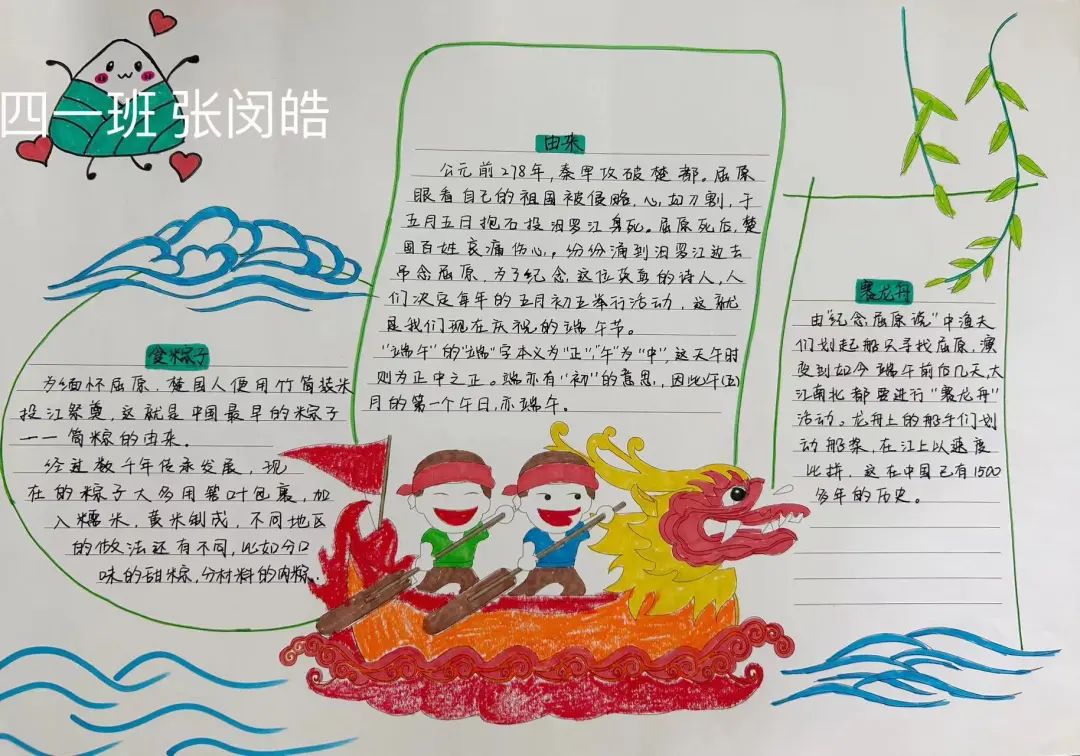 四一班 张闵皓
由来
公元前278年,秦军攻破楚都。屈原
眼看自己的祖国被侵略,心如刀割,于
五月五日抱石投汨罗江身死。屈原死后,楚
国百姓哀痛伤心,纷纷涌到汨罗江边去
吊念屈原,为了纪念这位英勇的诗人,人
们决定每年的五月初五举行活动,这就
是我们现在庆祝的端午节。
"端午"的"端"字本义为"正","午"为"中",这天午时
则为正中之正。端亦有"初"的意思,因此午(五)
月的第一个午日,亦端午。
食粽子
为缅怀屈原,楚国人便用竹筒装米
投江祭奠,这就是中国最早的粽子
——筒粽的由来。
经过数千年传承发展,现
在的粽子大多用箬叶包裹,加
入糯米,黄米制成,不同地区
的做法还有不同,比如分口
味的甜粽,分材料的肉粽.
赛龙舟
由"纪念屈原说"中渔夫
们划起船只寻找屈原,演
变到如今端午前后几天,大
江南北都要进行"赛龙舟"
活动。龙舟上的船手们划
动船桨,在江上以速度
比拼,这在中国已有1500
多年的历史。